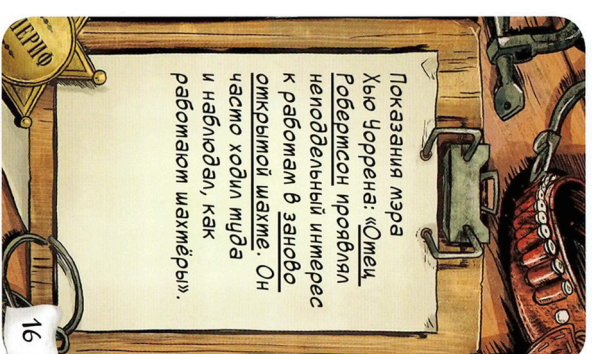 Показания мэра
Хью Уоррена: «Отец
Робертсон проявлял
неподдельный интерес
к работам в заново
открытой шахте. Он
часто ходил туда
и наблюдал, как
работают шахтёры».
16